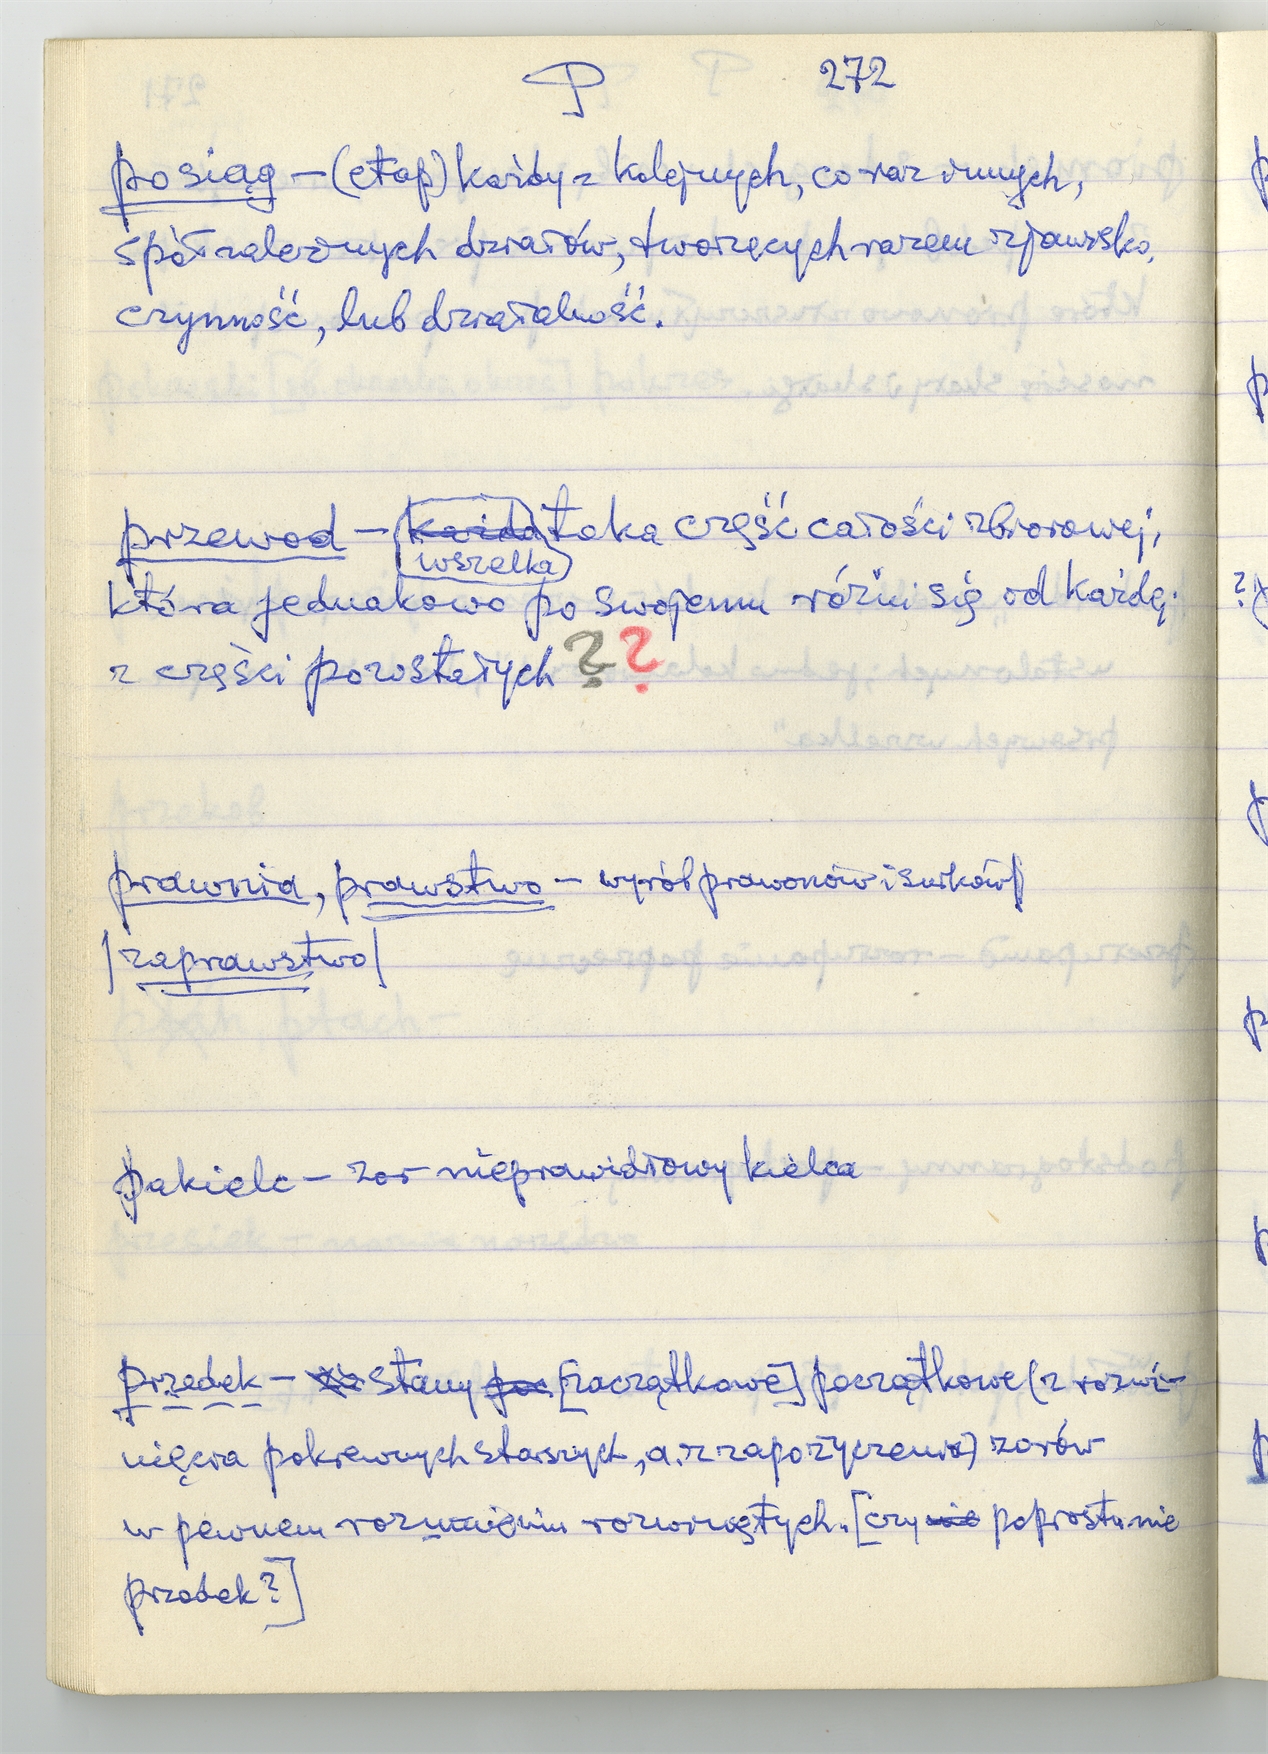 P 272
posiąg – (etap) każdy z kolejnych, coraz innych,
spółzależnych działów, tworzących razem zjawisko,
czynność, lub działalność.
przewod – każda taka część całości zbiorowej,
wszelka
która jednakowo po swojemu różni się od każdej
z części pozostałych ? ?
prawnia, prawstwo – wyrób prawonów i surków|
|zaprawstwo|
pakielc – zor nieprawidłowy kielca
przedek – stany [zaczątkowe] początkowe (z rozwi-
nięcia pokrewnych starszych, a. z zapożyczenia) zorów
w pewnem rozumieniu rozwiniętych. [czy nie poprostu nie
przodek?]